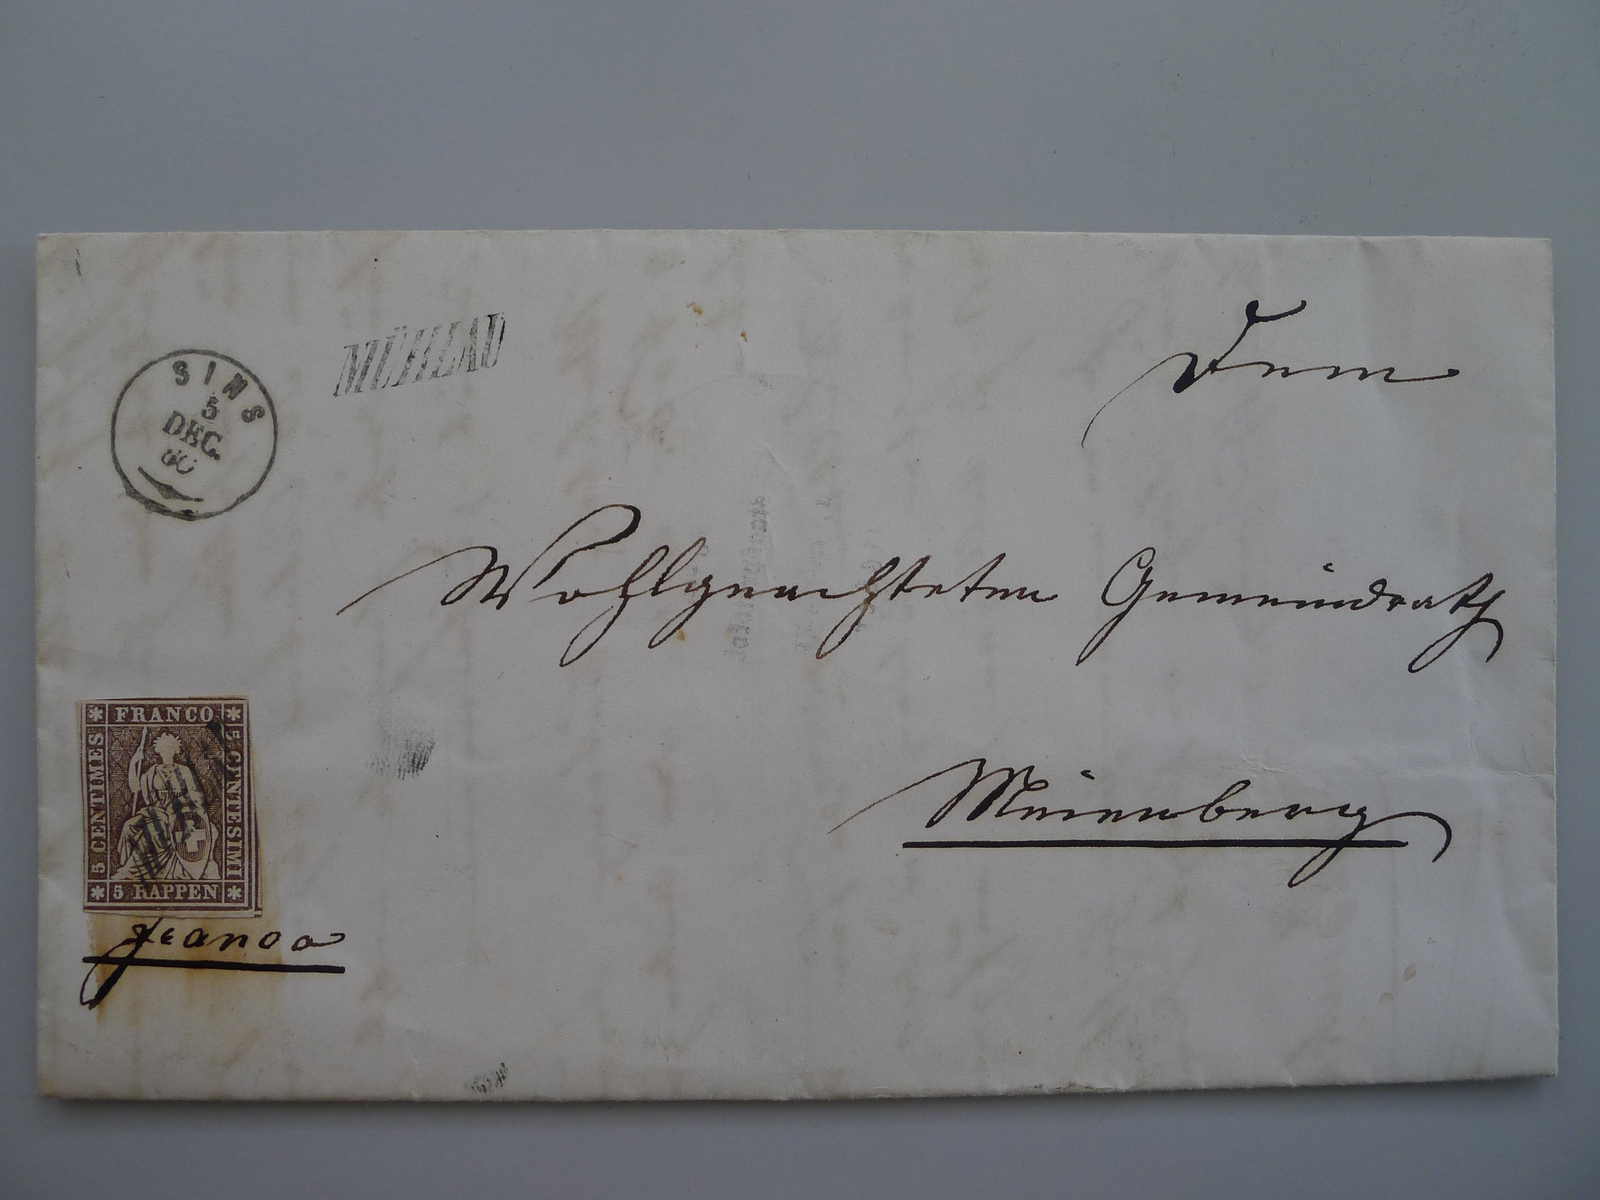 SINS
5
DEC.
60
MÜHLAU
Dem
Wohlgeachteten Gemeindrath
Meienberg
FRANCO
5 CENTIMES
5 CENTESIMI
5 RAPPEN
MÜHLAU
franco